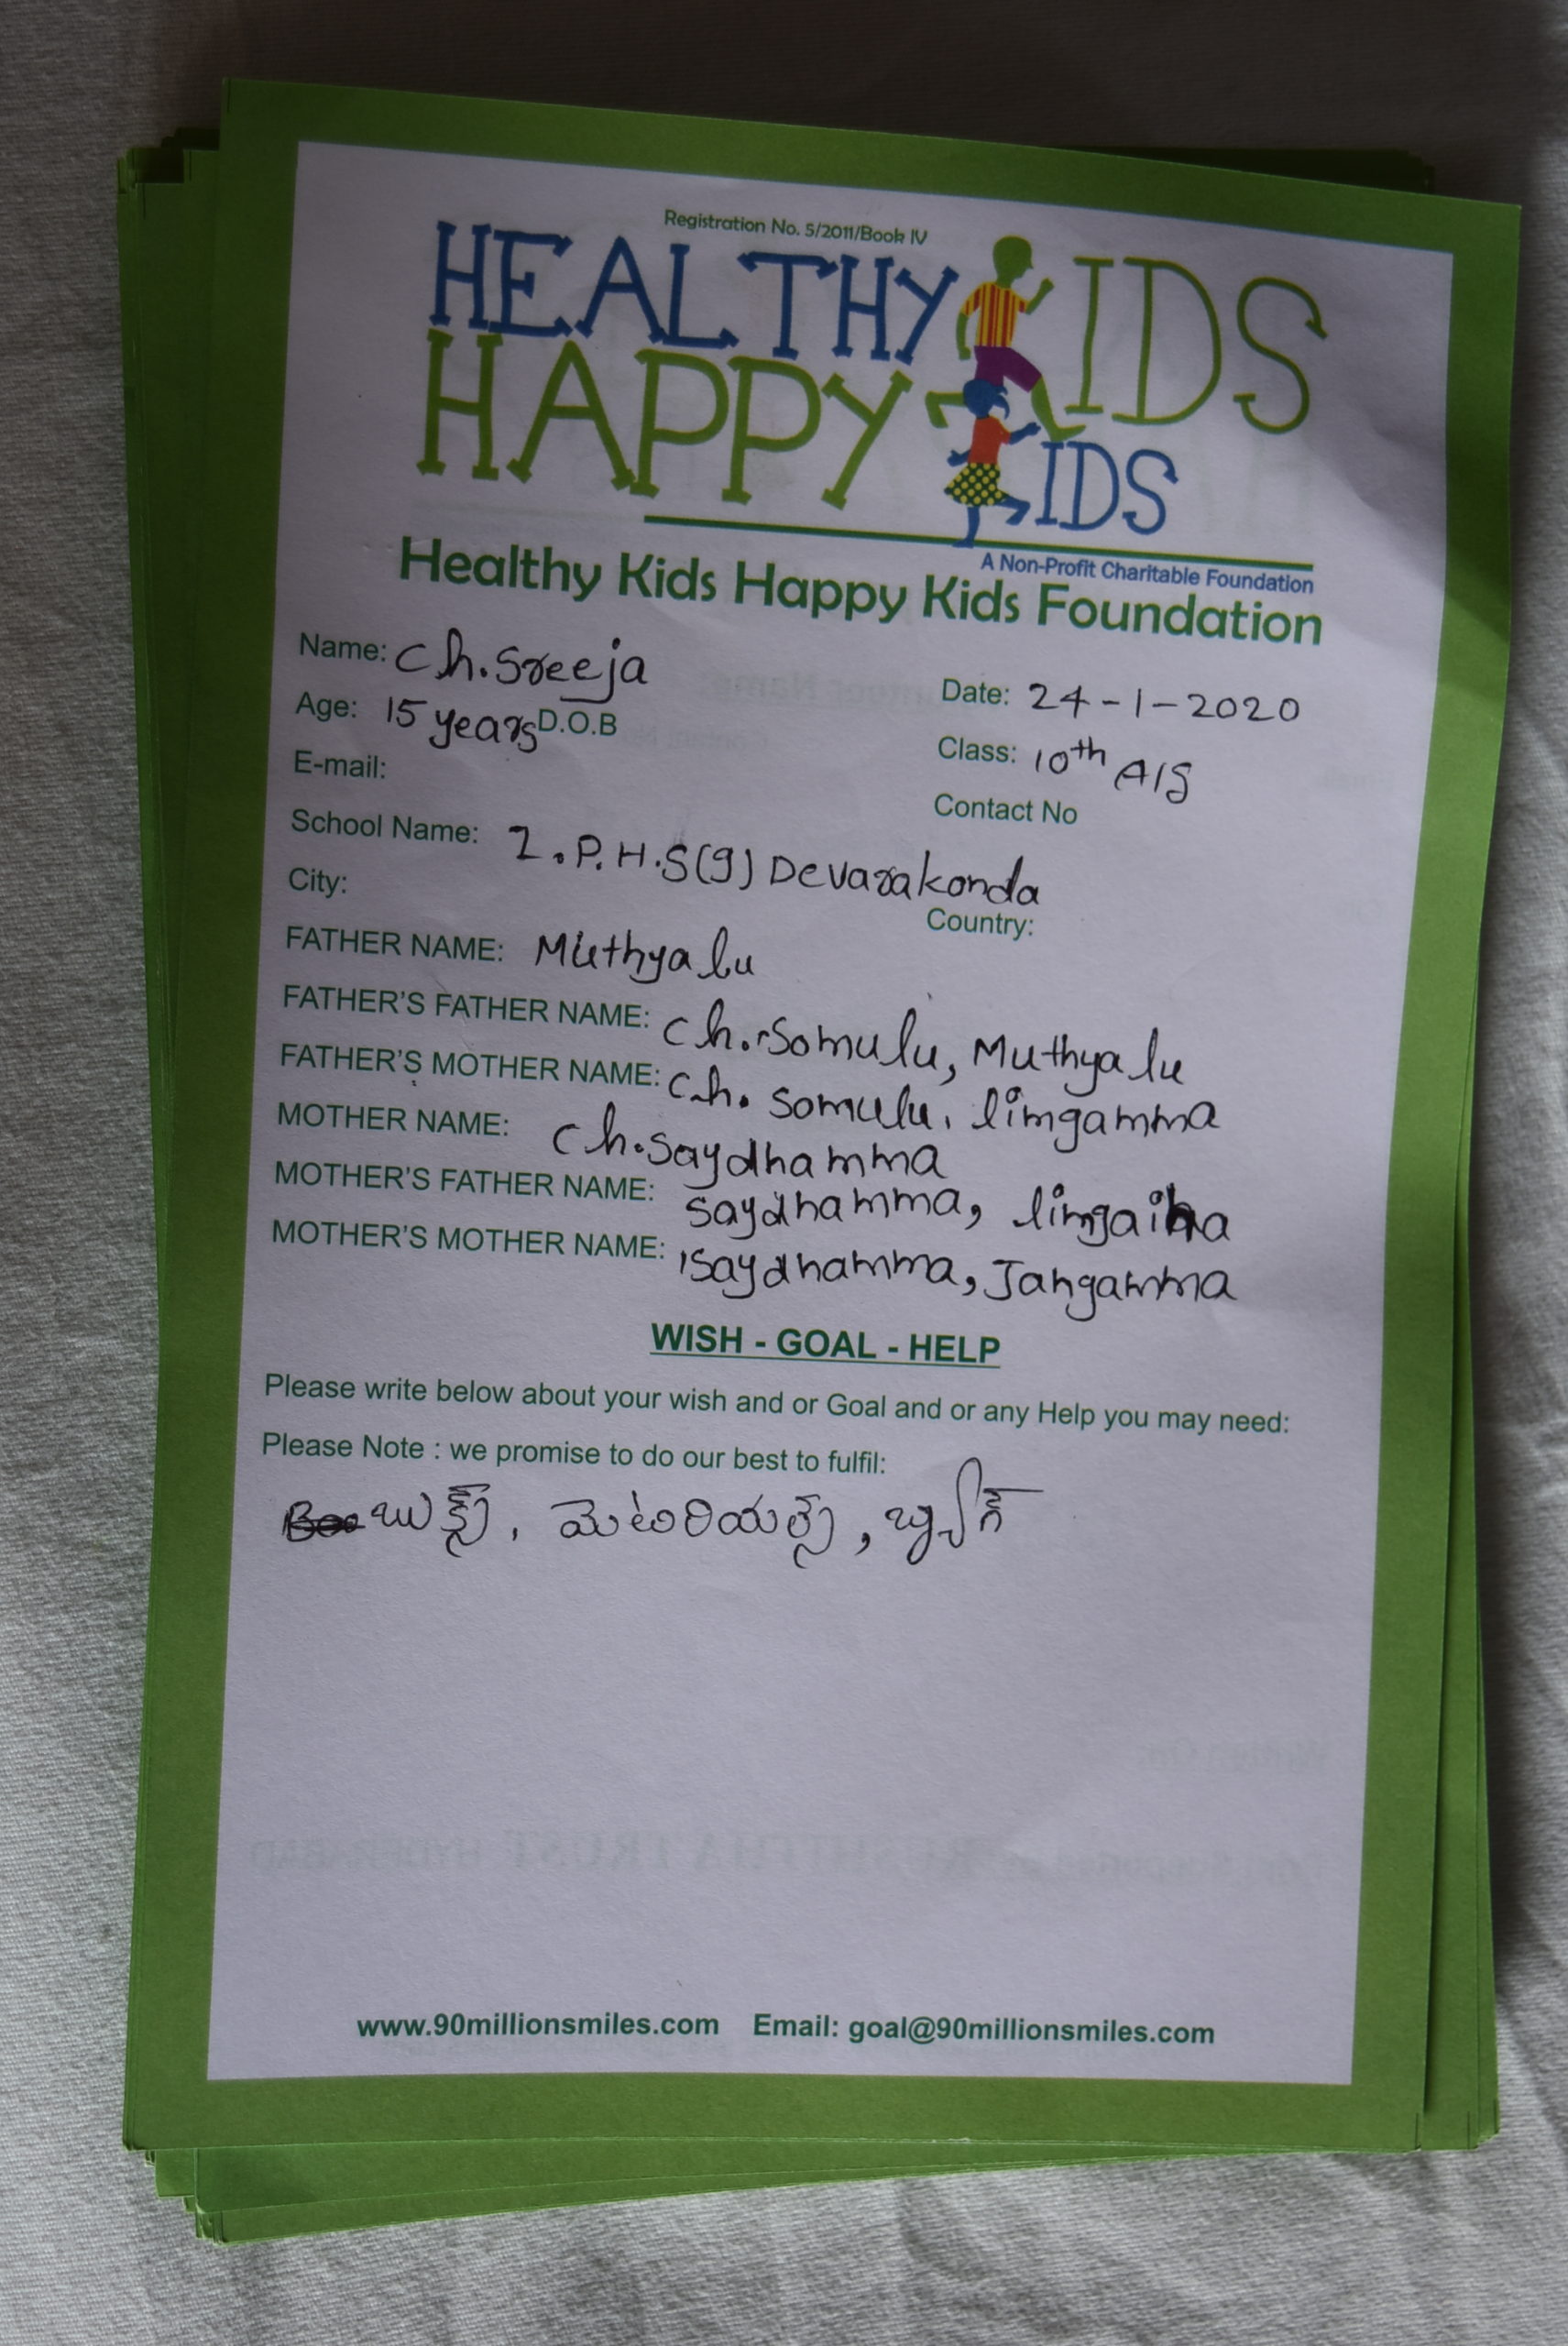 Registration No. 5/2011/Book IV
HEALTHY KIDS
HAPPY KIDS
A Non-Profit Charitable Foundation
Healthy Kids Happy Kids Foundation
Name: Ch.Sreeja
Date: 24-1-2020
Age: 15 years D.O.B
Class: 10th A/S
E-mail:
Contact No
School Name: Z.P.H.S(g) Devarakonda
City:
Country:
FATHER NAME: Muthyalu
FATHER'S FATHER NAME: Ch.Somulu, Muthyalu
FATHER'S MOTHER NAME: Ch. Somulu, limgamma
MOTHER NAME: Ch.Saydhamma
MOTHER'S FATHER NAME: Saydhamma,
MOTHER'S MOTHER NAME: Saydhamma, Jangamma
WISH - GOAL - HELP
Please write below about your wish and or Goal and or any Help you may need:
Please Note : we promise to do our best to fulfil:
బుక్స్, మెటిరియల్స్, బ్యాగ్
www.90millionsmiles.com Email: goal@90millionsmiles.com